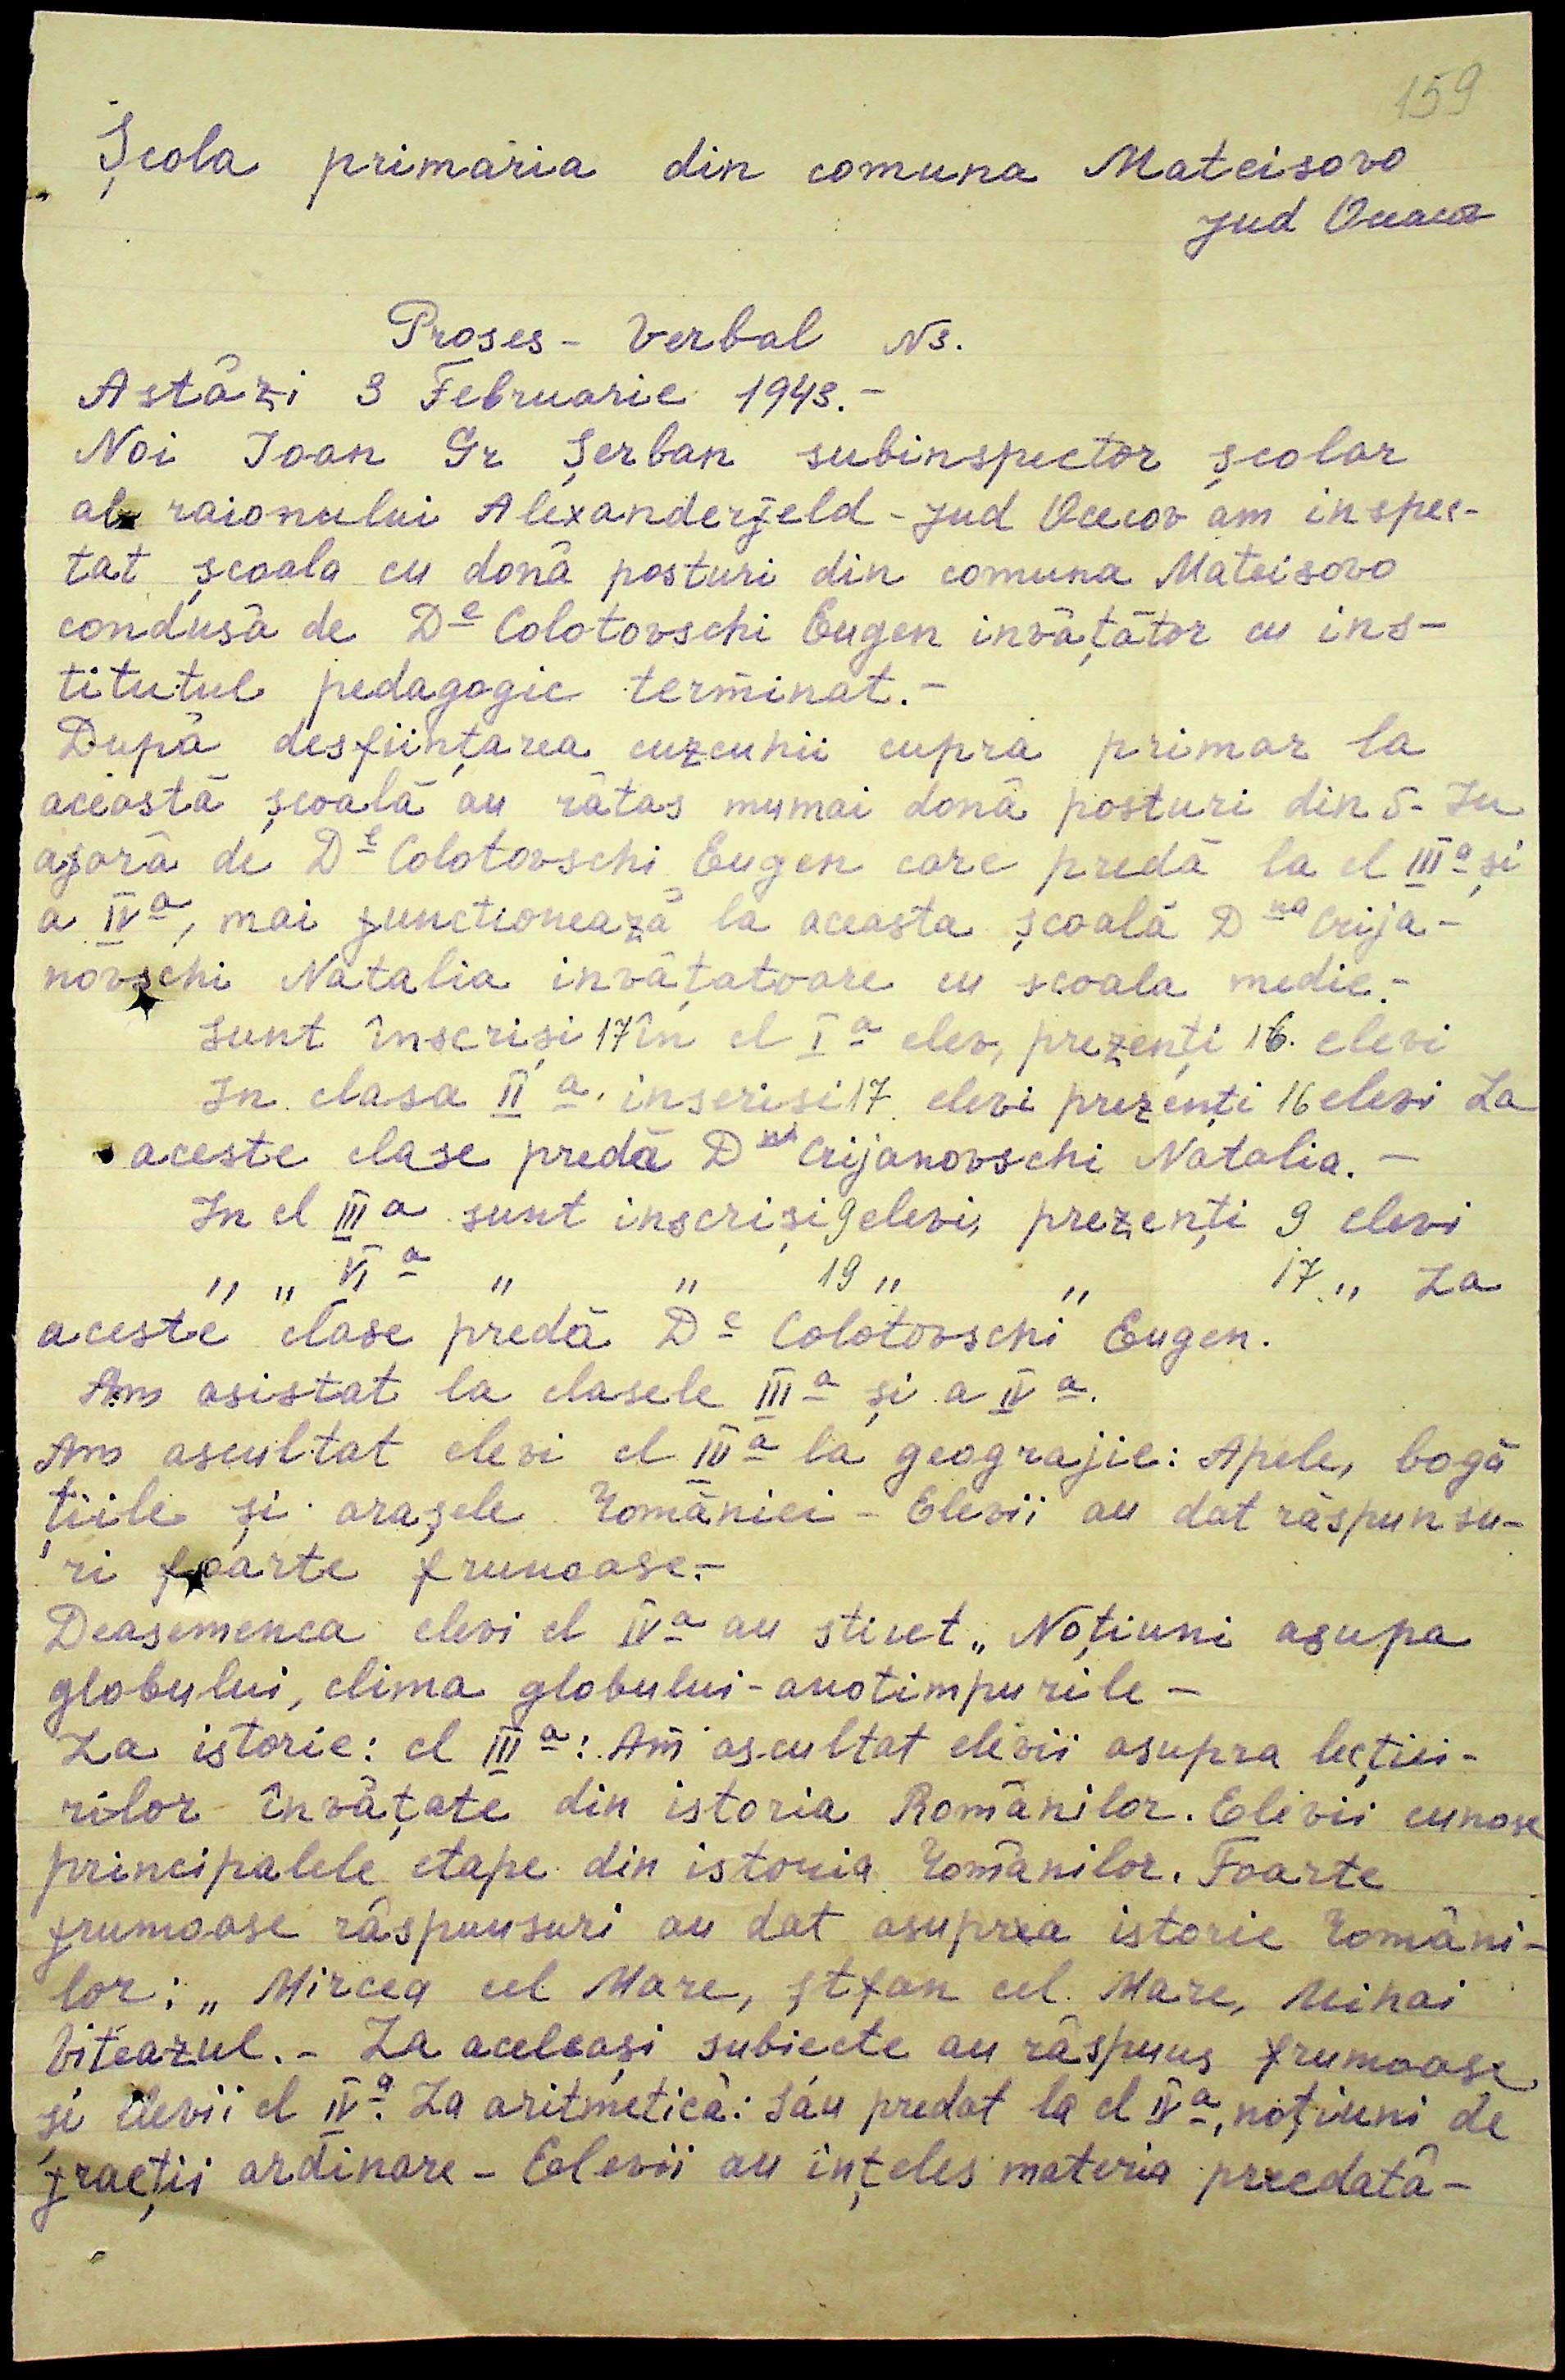 159
Școla primăria din comuna Mateisovo
jud Oceacov
Proses - Verbal N3.
Astăzi 3 Februarie 1943.-
Noi Ioan Gr Șerban subinspector școlar
al raionului Alexanderfeld - jud Ocecov am inspec-
tat școala cu donă posturi din comuna Mateisovo
condusă de Dl Colotovschi Eugen invățător cu ins-
titutul pedagogic terminat.-
După desființarea cuzcunii cupra primar la
această școală au rătas mumai donă posturi din 5- In
afară de Dl Colotovschi Eugen care predă la cl IIIa și
a IVa, mai funcționează la aceasta școală Dna Crija-
novschi Natalia invățatoare cu școala medie.-
Sunt înscriși 17 în cl Ia elev, prezenți 16. elevi
In clasa IIa. inscrisi 17 elevi prezenți 16 elevi La
aceste clase predă Dna Crijanovschi Natalia.-
In cl IIIa sunt inscriși 9 elevi, prezenți 9 elevi
" " VIa " " 19 " " 17 " La
aceste clase predă Dl Colotovschi Eugen.
Am asistat la clasele IIIa și a IVa.
Am ascultat elevi cl IIIa la geografie: Apele, bogă
țiile și orașele României - Elevii au dat răspunsu-
ri foarte frumoase.-
Deasemenea elevi cl IVa au stiut „ Noțiuni asupa
globului, clima globului - anotimpurile -
La istorie: cl IIIa: Am ascultat elevii asupra lecții-
rilor învățate din istoria Românilor. Elevii cunosc
principalele etape din istoria Românilor. Foarte
frumoase răspunsuri au dat asuprea istorie Români-
lor: „ Mircea cel Mare, Ștfan cel Mare, Mihai
Viteazul.- La aceleași subiecte au răspuns frumoase
și elevii cl IVa. La aritmetică: Sáu predat la cl IVa, noțiuni de
fracții ordinare - Eelevii au ințeles materia prredată -